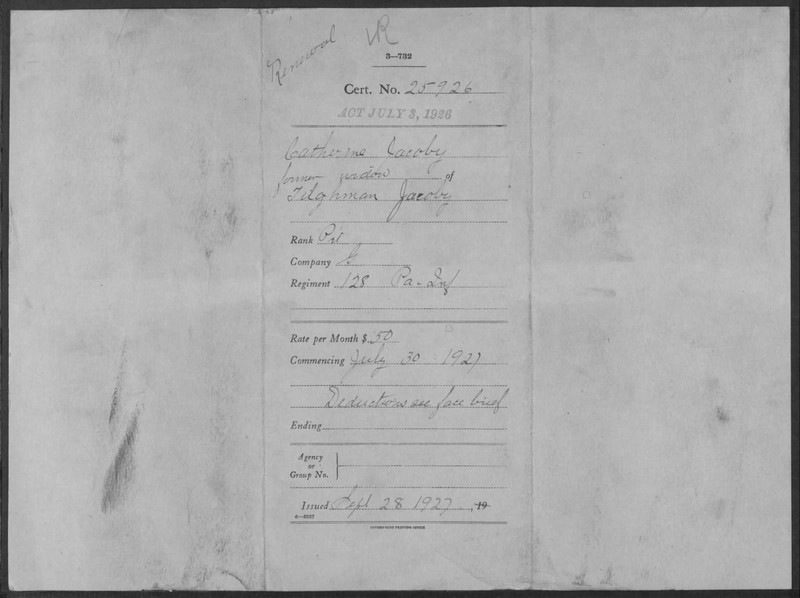 Renewal
R
3—732
Cert. No. 25926
ACT JULY 3, 1926
Catherine Jacoby
former widow of
Tilghman Jacoby
Rank Pvt
Company G
Regiment 128 Pa. Inf
Rate per Month $ 50
Commencing July 30 1927
Deductions see face brief
Ending
Agency
or
Group No.
Issued Sept 28 1927, 19
GOVERNMENT PRINTING OFFICE